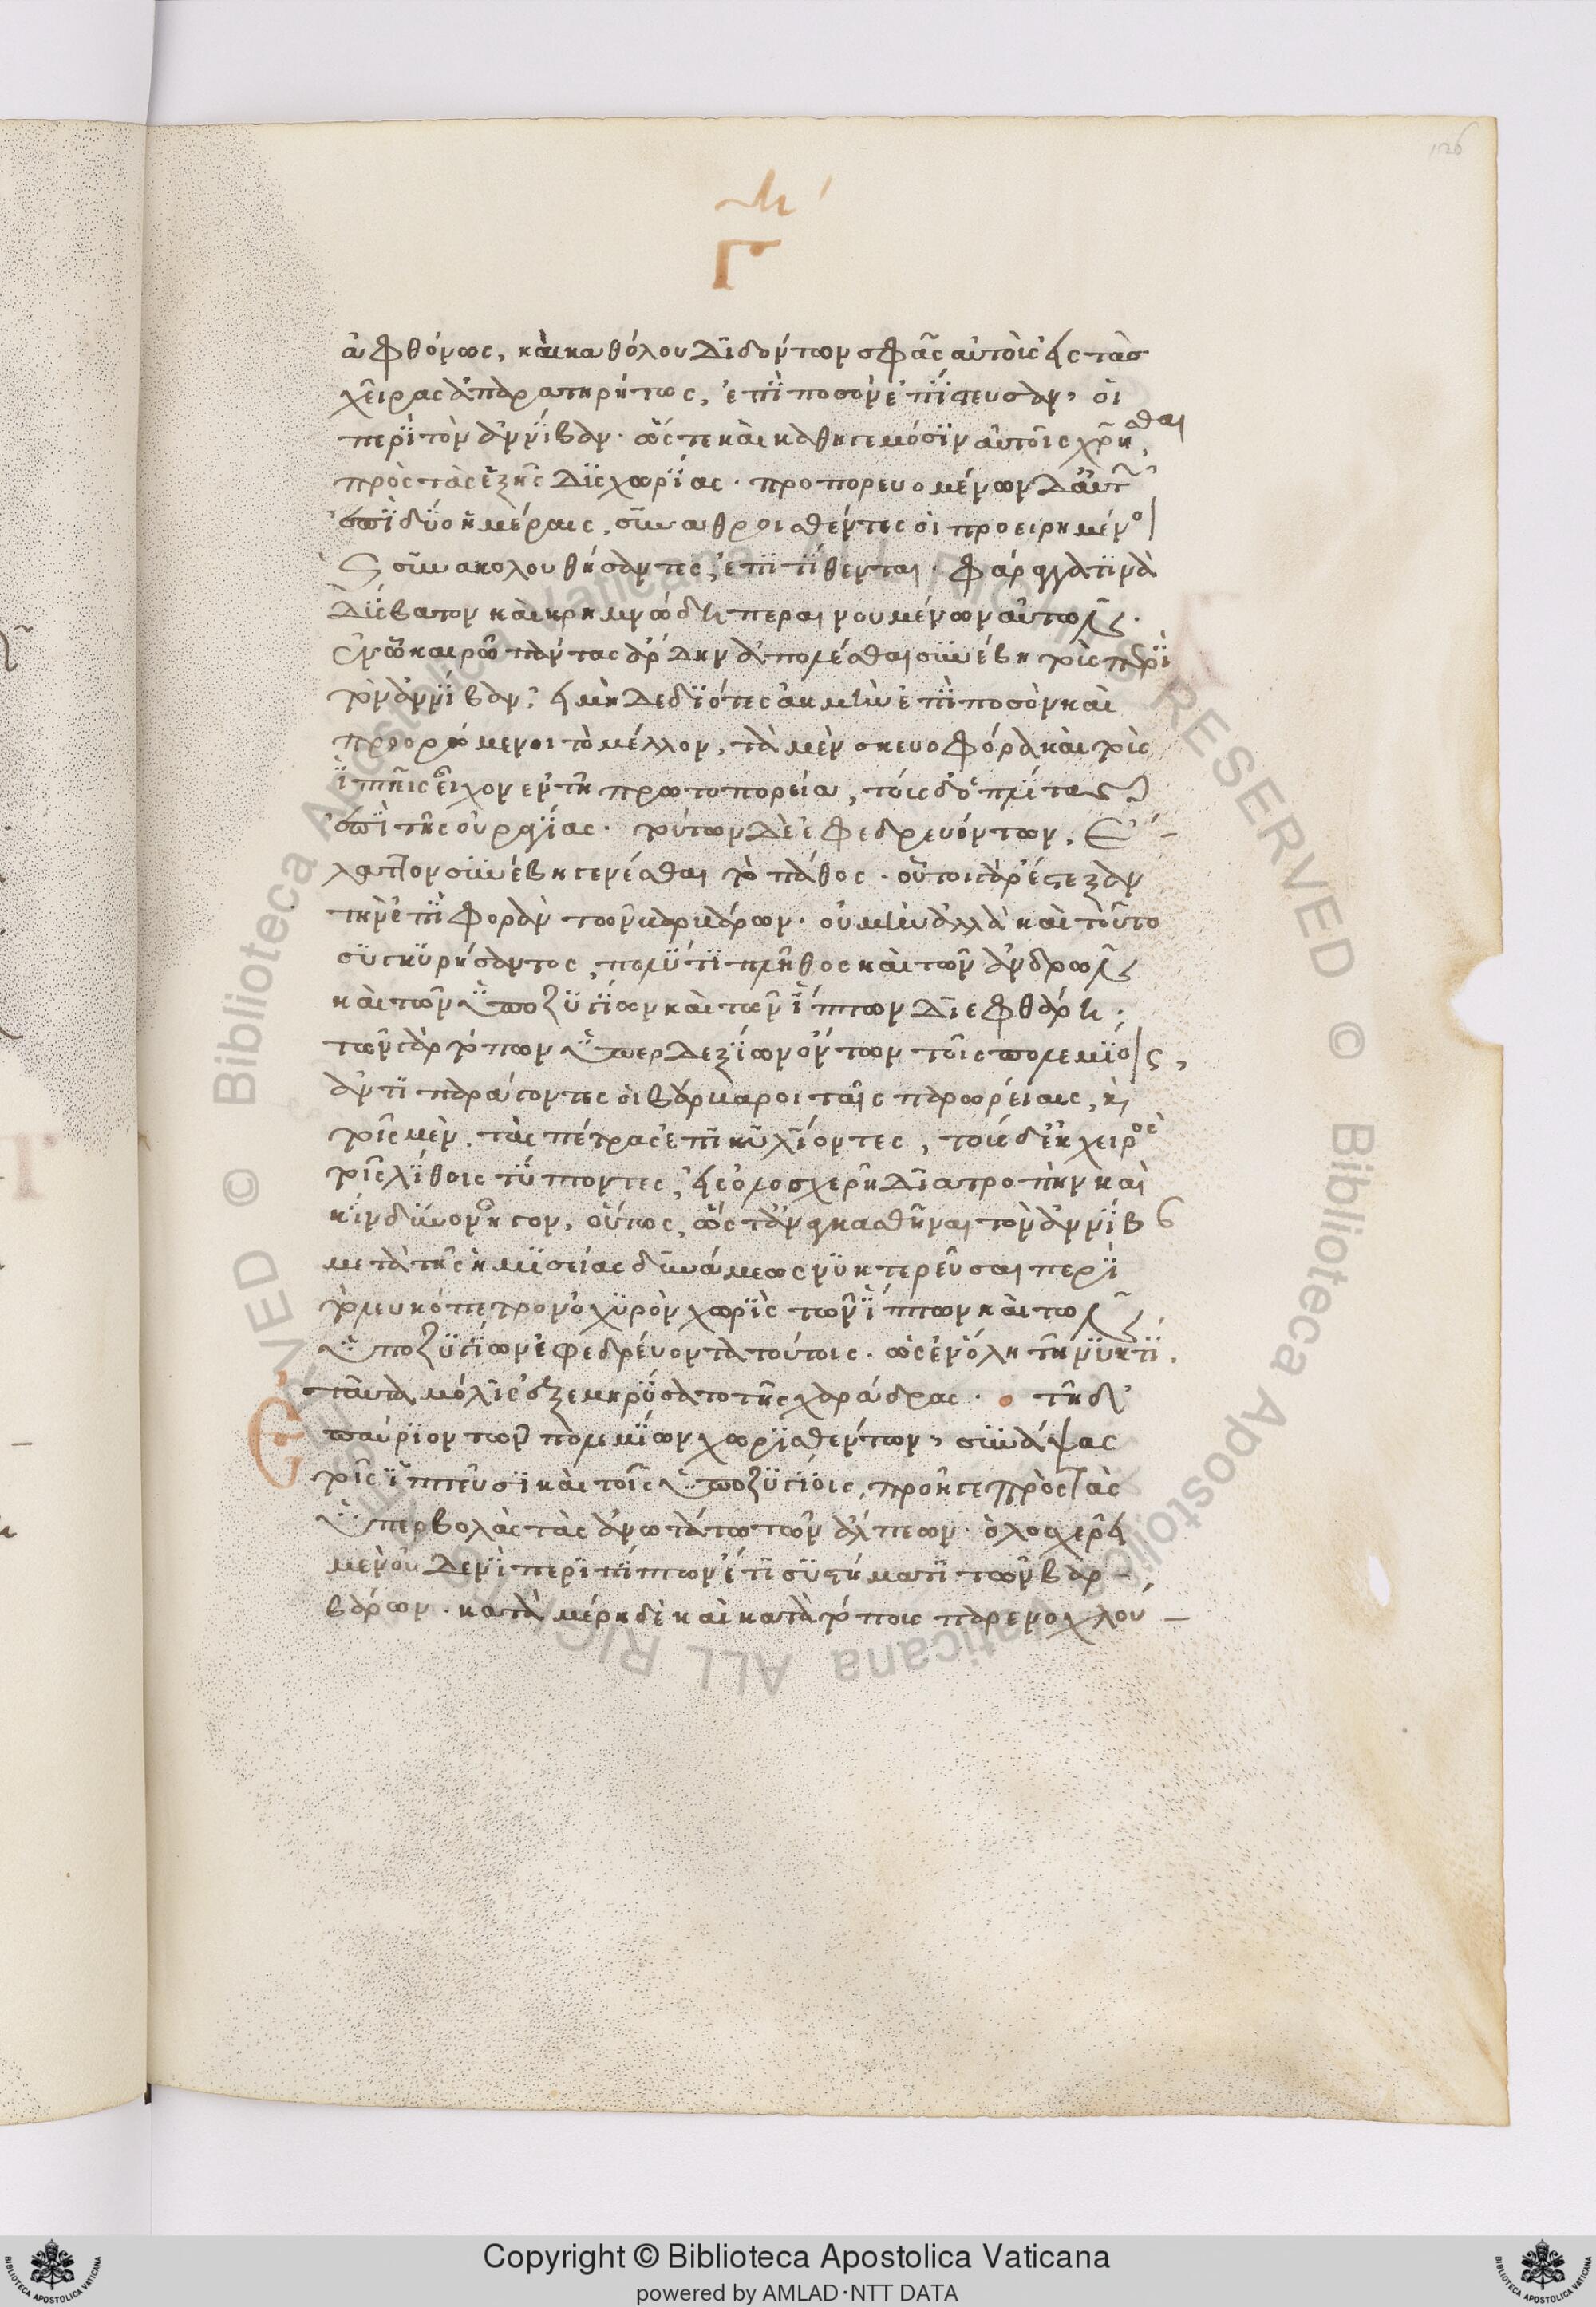 126
Γ
ἀφθόνως, καὶ καθόλου διδόντων σφᾶς αὐτοὺς εἰς τὰς
χεῖρας ἀπαρατηρήτως, ἐπὶ ποσὸν ἐπίστευσαν, οἱ
περὶ τὸν ἀννίβαν· ὥστε καὶ καθηγεμόσιν αὐτοῖς χρῆσθαι,
πρὸς τὰς ἑξῆς δυσχωρίας· προπορευομένων δ' αὐτῶν
ἐπὶ δύο ἡμέραις, συναθροισθέντες οἱ προειρημένοι
καὶ συνακολουθήσαντες, ἐπιτίθενται· φάραγγά τινα
δύσβατον καὶ κρημνώδη περαιουμένων αὐτῶν·
ἐν ᾧ καιρῷ πάντας ἄρδην ἀπολέσθαι συνέβη τοὺς περὶ
τὸν ἀννίβαν, εἰ μὴ δεδιότες ἀκμὴν ἐπὶ ποσὸν καὶ
προορώμενοι τὸ μέλλον, τὰ μὲν σκευοφόρα καὶ τοὺς
ἱππεῖς εἶχον ἐν τῇ πρωτοπορείᾳ, τοὺς δ' ὁπλίτας
ἐπὶ τῆς οὐραγίας· τούτων δὲ ἐφεδρευόντων, ἔ-
λαττον συνέβη γενέσθαι τὸ πάθος· οὗτοι γὰρ ἔστεξαν
τὴν ἐπιφορὰν τῶν βαρβάρων· οὐ μὴν ἀλλὰ καὶ τούτου
συγκυρήσαντος, πολύ τι πλῆθος καὶ τῶν ἀνδρῶν
καὶ τῶν ὑποζυγίων καὶ τῶν ἵππων διεφθάρη·
τῶν γὰρ τόπων ὑπερδεξίων ὄντων τοῖς πολεμίοις,
ἀντιπαράγοντες οἱ βάρβαροι ταῖς παρωρείαις, καὶ
τοῖς μὲν τὰς πέτρας ἐπικυλίοντες, τοὺς δ' ἐκ χειρὸς
τοῖς λίθοις τύπτοντες, εἰς ὁλοσχερῆ διατροπὴν καὶ
κίνδυνον ἦγον, οὕτως, ὥστ' ἀναγκασθῆναι τὸν ἀννίβαν
μετὰ τῆς ἡμισείας δυνάμεως νυκτερεῦσαι περί
τι λευκόπετρον ὀχυρὸν χωρὶς τῶν ἵππων καὶ τῶν
ὑποζυγίων ἐφεδρεύοντα τούτοις· ὡς ἐν ὅλῃ τῇ νυκτὶ
ταῦτα μόλις ἐξεμηρύσατο τῆς χαράδρας· τῇ δ' ἐ
παύριον τῶν πολεμίων χωρισθέντων, συνάψας
τοῖς ἱππεῦσι καὶ τοῖς ὑποζυγίοις, προῆγε πρὸς τὰς
ὑπερβολὰς τὰς ἀνωτάτω τῶν ἄλπεων· ὁλοσχερεῖ
μὲν οὐδενὶ περιπίπτων ἔτι συστήματι τῶν βαρ-
βάρων· κατὰ μέρη δὲ καὶ κατὰ τόπους παρενοχλού-
Copyright © Biblioteca Apostolica Vaticana
powered by AMLAD·NTT DATA